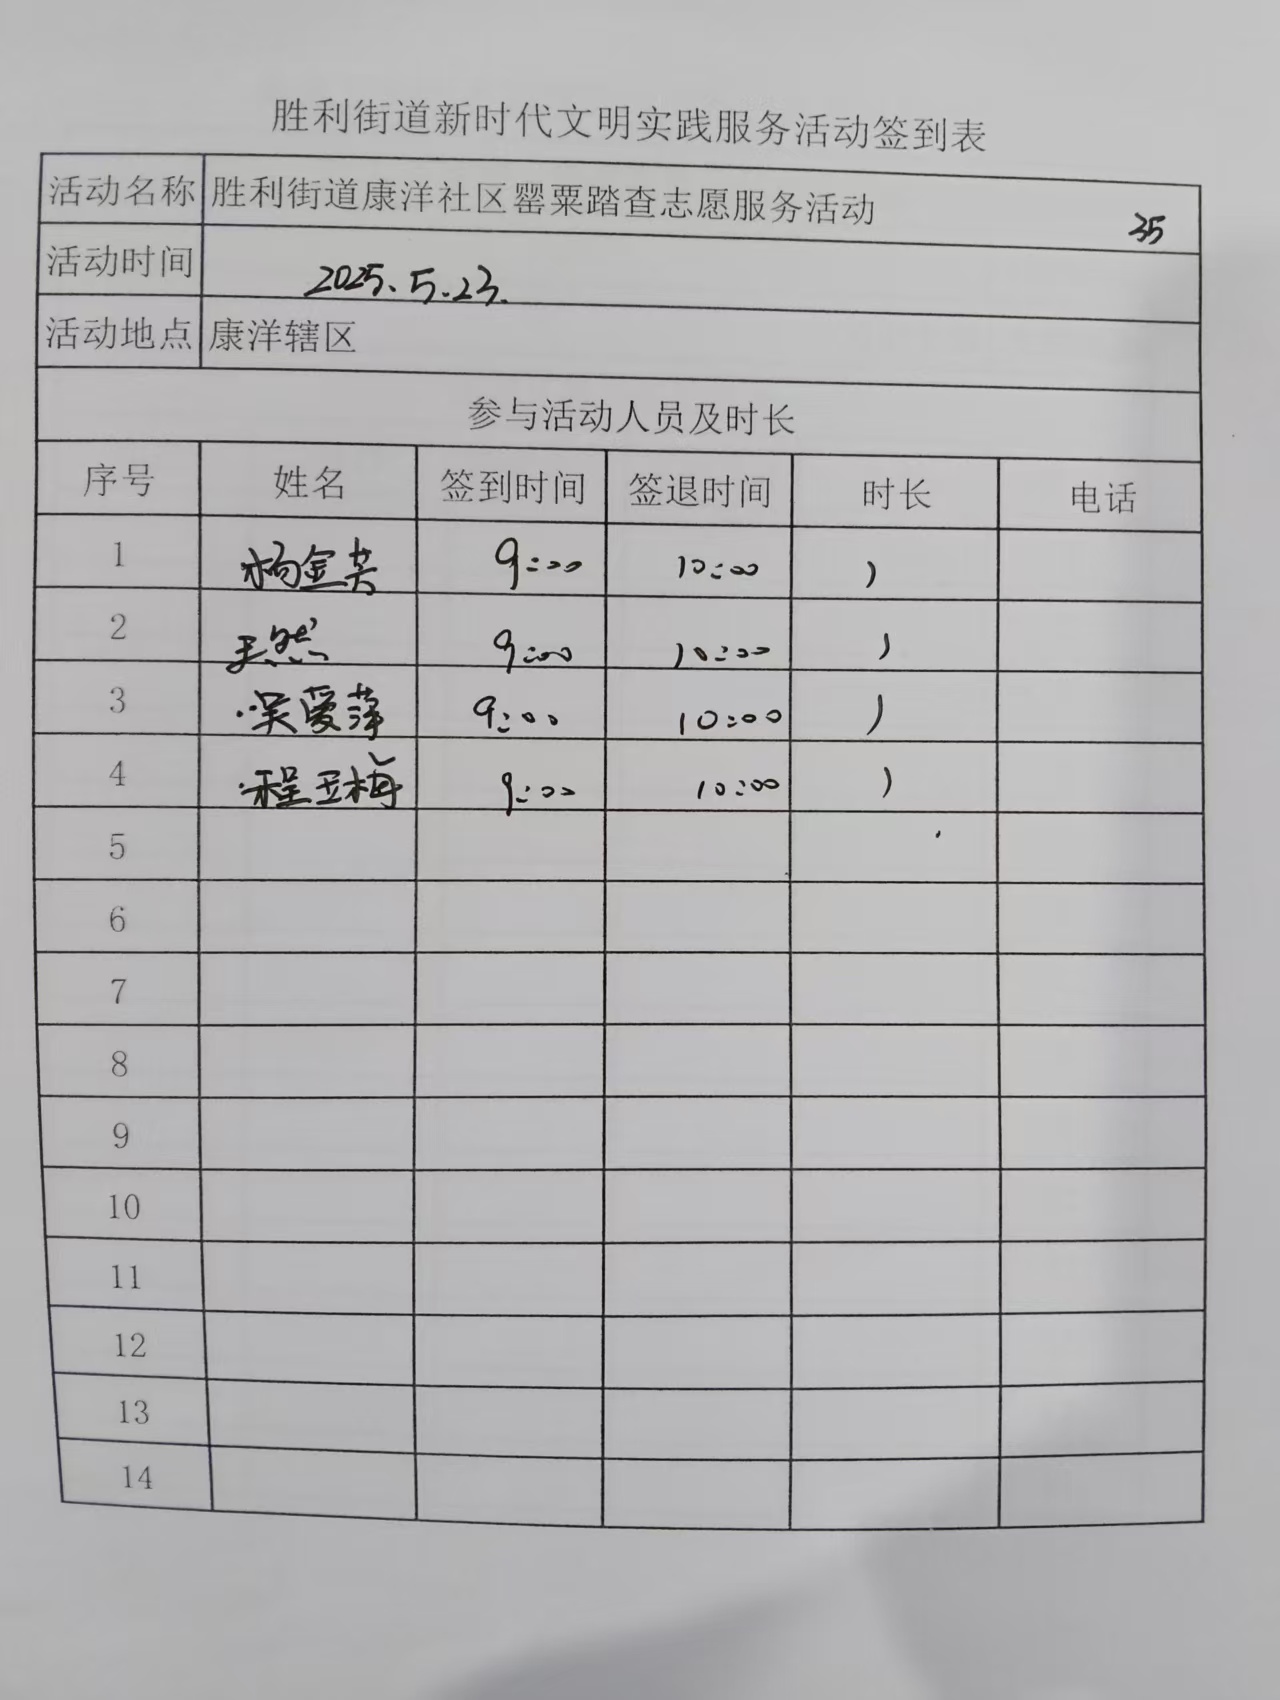 胜利街道新时代文明实践服务活动签到表
活动名称 胜利街道康洋社区罂粟踏查志愿服务活动 35
活动时间 2025.5.23.
活动地点 康洋辖区
参与活动人员及时长
序号 姓名 签到时间 签退时间 时长 电话
1 杨金英 9:00 10:00 1
2 王然 9:00 10:00 1
3 吴爱萍 9:00 10:00 1
4 程玉梅 9:00 10:00 1
5
6
7
8
9
10
11
12
13
14